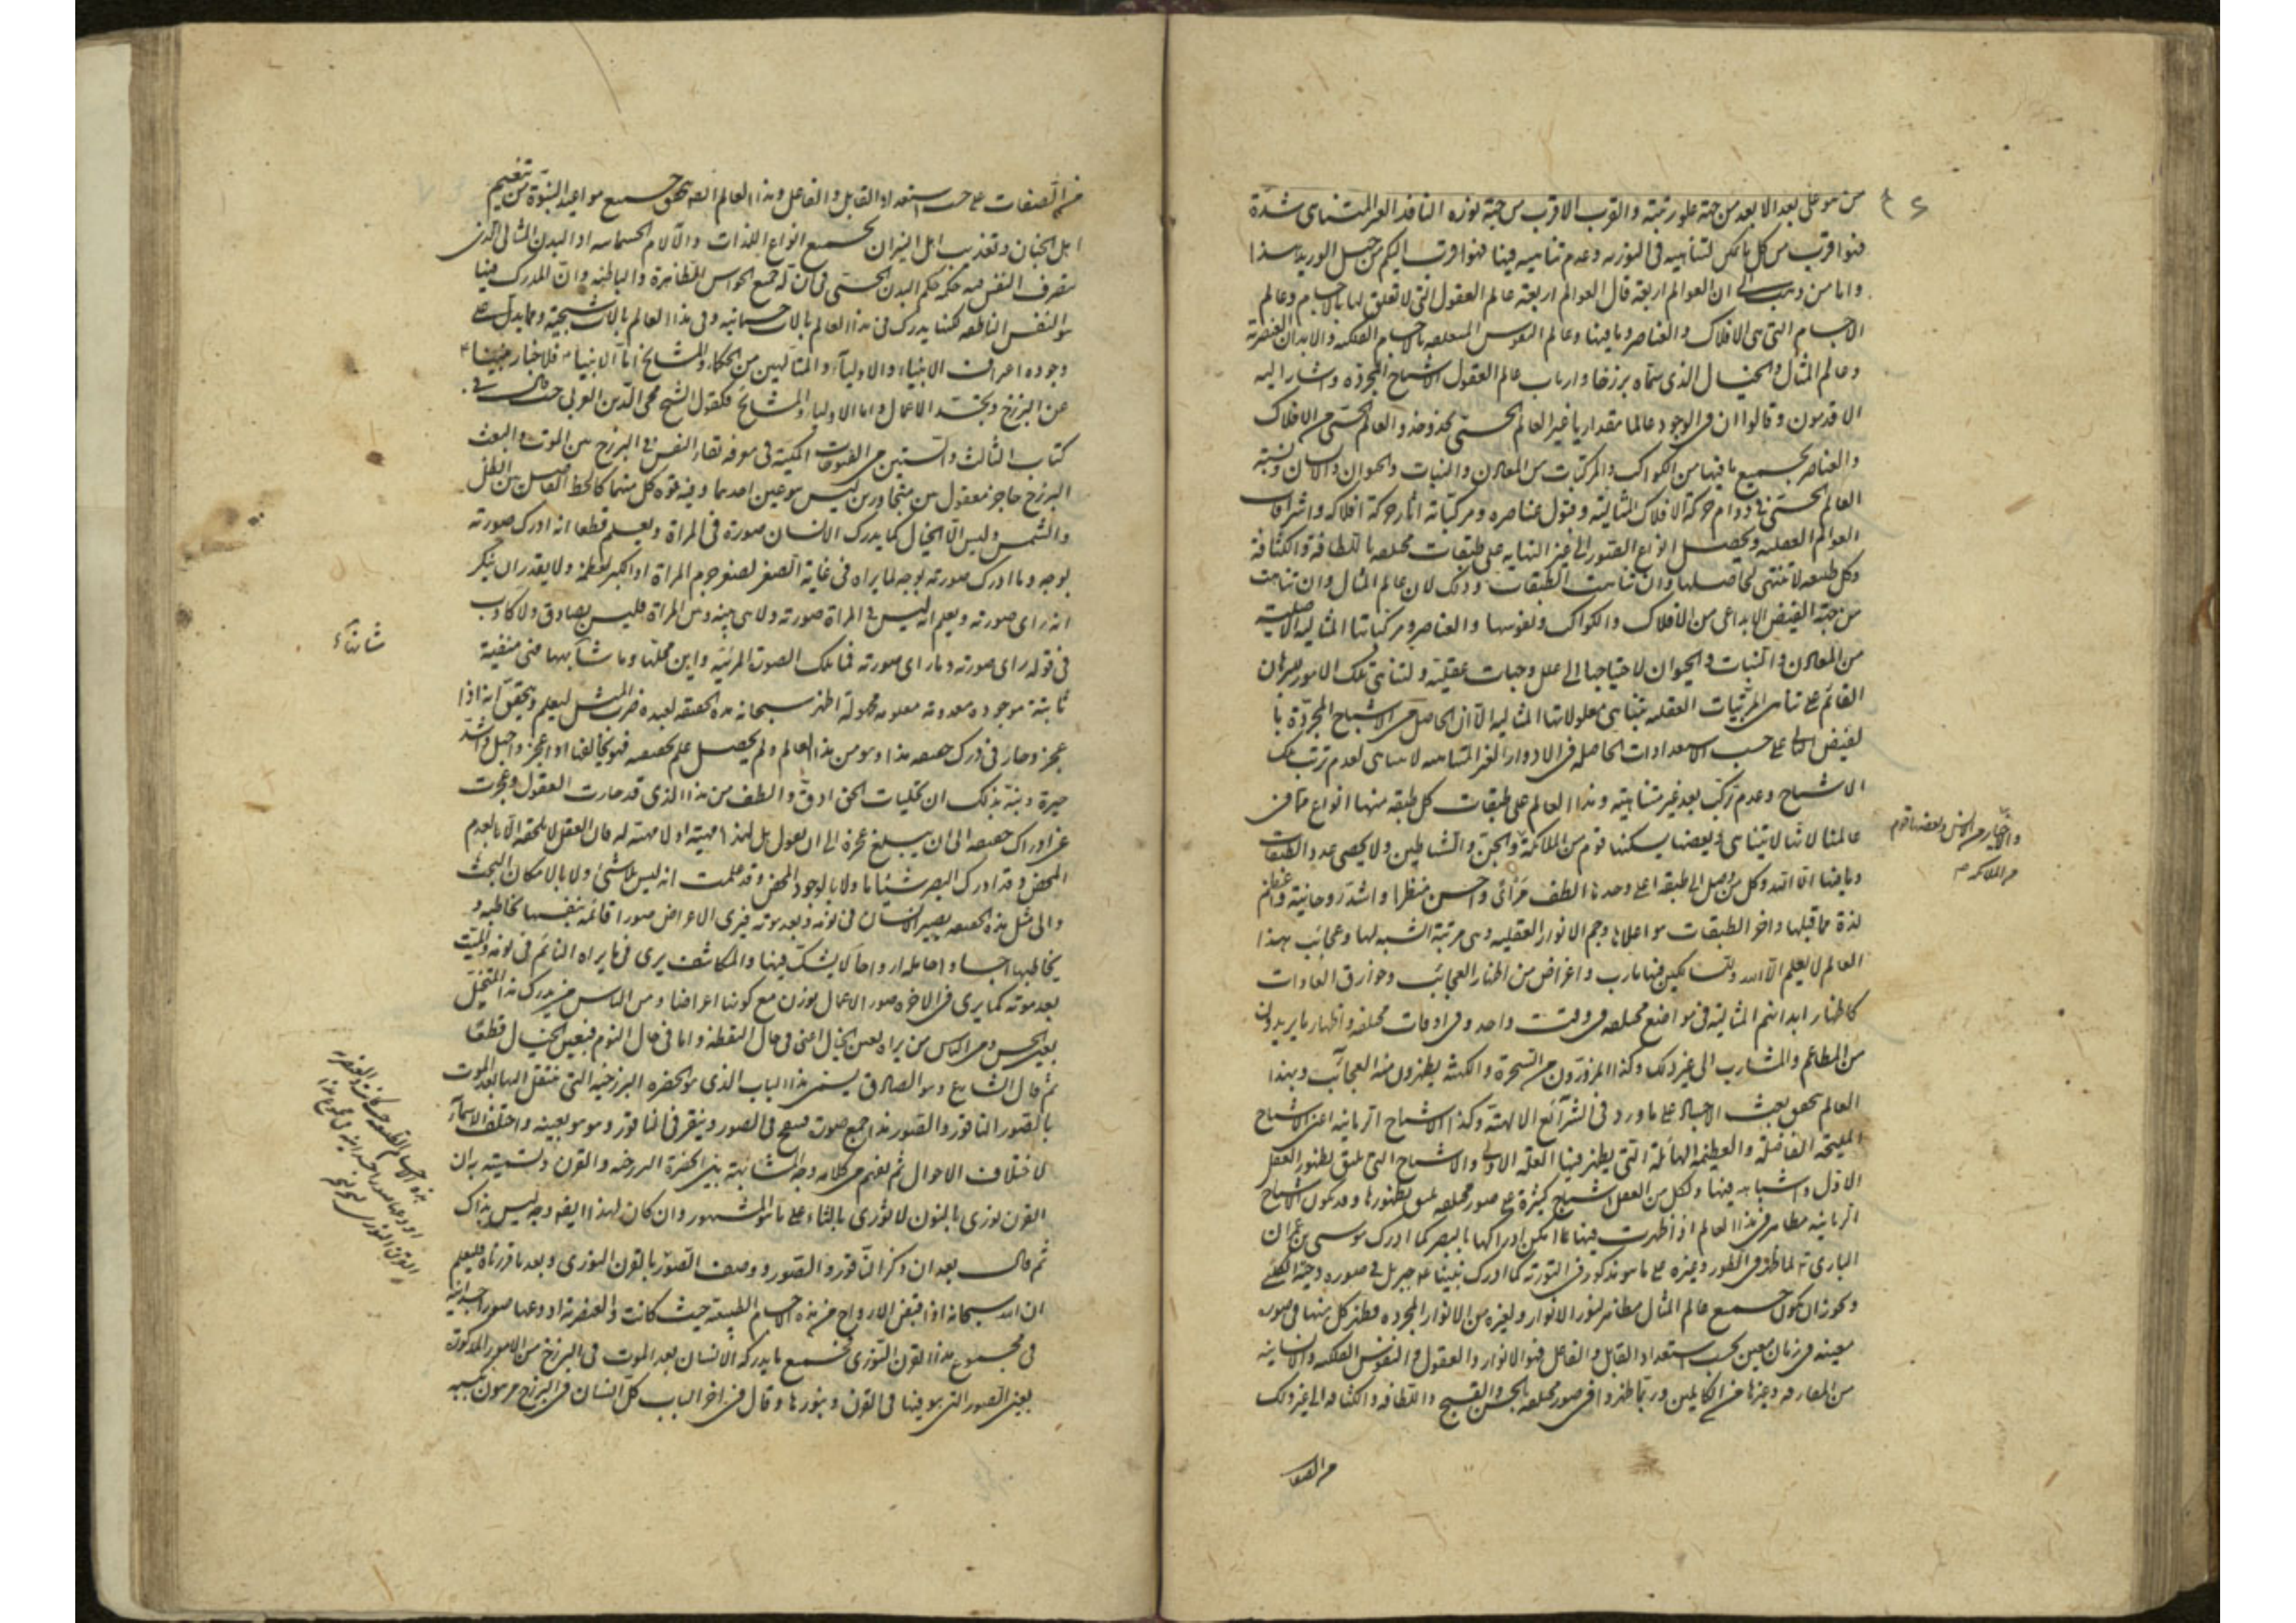 من هو على بعد الابعد من جهة علو رتبته والقرب الاقرب من جهة نوره النافذ الغير المتناهى شدة
فهو اقرب من كل ما يمكن لتناهيه فى النورية وعدم تناهيه فيها فهو اقرب اليكم من حبل الوريد هذا
واما من ذهب الى ان العوالم اربعة قال العوالم اربعة عالم العقول التى لا تعلق لها بالاجسام وعالم
الاجسام التى هى الافلاك والعناصر وما فيها وعالم النفوس المتعلقه بالاجسام الفلكيه والابدان العنصرية
وعالم المثال والخيال الذى سماه برزخا وارباب عالم العقول الاشباح المجردة واشار اليه
الاقدمون وقالوا ان فى الوجود عالما مقداريا غير العالم الحسى يحذو حذو العالم الحسى من الافلاك
والعناصر بجميع ما فيها من الكواكب والمركبات من المعادن والنبات والحيوان والانسان ونسبة
العالم الحسى فى دوام حركة الافلاك المثالية وقبول عناصره ومركباته اثار حركة افلاكه واشراقات
العوالم العقليه ويحصل انواع الصور الى غير النهايه على طبقات مختلفه باللطافة والكثافة
وكل طبقه لا تنتهى اشخاصها وان تناهت الطبقات وذلك لان عالم المثال وان تناهت
من جهة الفيض الابداعى من الافلاك والكواكب ونفوسها والعناصر ومركباتها المثاليه الاصلية
من المعادن والنبات والحيوان لاحتياجها الى علل وجهات عقلية ولتناهى تلك الامور للبرهان
القائم على تناهى المرتبات العقليه يتناهى معلولاتها المثاليه الا ان الحاصل من الاشباح المجردة با
لفيض على حسب الاستعدادات الحاصله فى الادوار الغير المتناهيه لا يتناهى لعدم ترتب تلك
الاشباح وعدم تركب بعد غير متناهيه وهذا العالم على طبقات كل طبقه منها انواع مما فى
عالمنا لانها لا يتناهى وبعضها يسكنها قوم من الملائكة والجن والشياطين ولا يحصى عدد الطبقات
وما فيها الا الله وكل من وصل الى طبقه اعلى وجدها الطف مرائى واحسن منظرا واشد روحانية واعظم
لذة مما قبلها واخر الطبقات هو اعلاها وجم الانوار العقليه وهى مرتبة الشبه لها وعجائب هذا
العالم لا يعلمه الا الله وللسالكين فيها مارب واغراض من اظهار العجائب وخوارق العادات
كاظهار ابدانهم المثالية فى مواضع مختلفه فى وقت واحد وفى اوقات مختلفه واظهار ما يريدون
من المطاعم والمشارب الى غير ذلك وكذا المبرزون من السحرة والكهنة يظهرون منه العجائب وبهذا
العالم تحقق بعث الاجساد على ما ورد فى الشرائع الالهية وكذا الاشباح الربانيه اعنى الاشباح
المليحة الفاضلة والعظيمة الهائلة التى يظهر فيها العلة الاولى والاشباح التى تليق بظهور العقل
الاول واشباهه فيها ولكل من العقل اشباح كثيرة على صور مختلفه تليق بظهورها وقد يكون للاشباح
الربانيه مظاهر فى هذا العالم اذا ظهرت فيها امكن ادراكها بالبصر كما ادرك موسى بن عمران
البارى لما ظهر فى الطور وغيره على ما هو مذكور فى التورية كما ادرك نبينا جبريل فى صورة دحية الكلبى
ويجوز ان يكون جميع عالم المثال مظاهر لنور الانوار ولغيره من الانوار المجرده فظهر كل منها فى صورة
معينه فى زمان معين بحسب استعداد القابل والفاعل فهو الانوار والعقول والنفوس الفلكيه والانسانيه
من المفارقه وغيرها من الكاملين وربما ظهروا فى صور مختلفه بالحسن والقبيح واللطافه والكثافه الى غير ذلك
من الصفات
والاخيار من الانس وبعضها قوم
من الملائكه صح
من الصفات على حسب استعداد القابل والفاعل وهذا العالم تحقق جميع مواعيد النبوة من تنعيم
اهل الجنان وتعذيب اهل النيران بجميع انواع اللذات والآلام الجسمانيه اذ البدن المثالى الذى
يتصرف النفس فيه حكمه حكم البدن الحسى فى ان له جميع الحواس الظاهرة والباطنه وان المدرك فيها
هو النفس الناطقه لكنها يدرك فى هذا العالم بالات جسمانيه وفى هذا العالم بالات شبحية ومما يدل على
وجوده اعتراف الانبياء والاولياء والمتالهين من الحكماء والمشايخ اما الانبياء فلاخبار نبينا
عن البرزخ وتجسد الاعمال واما الاولياء والمشائخ فكقول الشيخ محى الدين العربى حيث قال فى
كتاب الثالث والستين من الفتوحات المكية فى معرفه بقاء النفس فى البرزخ بين الموت والبعث
البرزخ حاجز معقول بين متجاورين ليس هو عين احدهما وفيه قوة كل منهما كالخط الفاصل بين الظل
والشمس وليس الا الخيال كما يدرك الانسان صورة فى المراة ويعلم قطعا انه ادرك صورته
بوجه وما ادرك صورته بوجه لما يراه فى غاية الصغر لصغر جرم المراة او الكبر لعظمه ولا يقدر ان ينكر
انه راى صورته ويعلم انه ليس فى المراة صورته ولا هى بينه وبين المراة فليس بصادق ولا كاذب
فى قوله راى صورته وما راى صورته فما تلك الصورة المرئيه واين محلها وما شانها فهى منفية
ثابتة موجوده معدومة معلومه مجهولة اظهر سبحانه هذه الحقيقه لعبده ضرب المثل ليعلم ويتحقق انه اذا
عجز وحار فى درك حقيقه هذا وهو من هذا العالم ولم يحصل علم بحقيقته فهو بخالقها اذا اعجز واجهل واشد
حيرة ونبه بذلك ان تجليات الحق ادق والطف من هذا الذى قد حارت العقول وعجزت
عن ادراك حقيقته الى ان يبلغ عجزه الى ان يقول هل لهذا مهيته او لا مهيته له فان العقل لا يلحقه الا بالعدم
المحض وقد ادرك البصر شيئا ما ولا بالوجود المحض وقد علمت انه ليس بلاشئ ولا بالامكان البحت
والى مثل هذه الحقيقه يصير الانسان فى نومه وبعد موته فيرى الاعراض صورا قائمة بنفسها تخاطبه و
يخاطبها اجسادا حامله ارواحا لا يشك فيها والمكاشف يرى فى ما يراه النائم فى نومه والميت
بعد موته كما يرى فى الاخره صور الاعمال توزن مع كونها اعراضا ومن الناس من يدرك هذا المتخيل
بعين الحس ومن الناس من يراه بعين الخيال اعنى فى حال اليقظه واما فى حال النوم فبعين الخيال قطعا
ثم قال الشارع وهو الصادق يسمى هذا الباب الذى هو الحضره البرزخيه التى تنتقل اليها بعد الموت
بالصور الناقور والصور هذا جمع صورت فينفخ فى الصور وينقر فى الناقور وهو هو بعينه واختلف الاسماء
لاختلاف الاحوال ثم يفهم من كلامه وجه المشابهة بين الحضرة البرزخيه والقرن وتسميته به ان
القرن نورى بالنون لا ثورى بالثاء على ما هو المشهور وان كان لهذا ايضه وجه ليس بذاك
ثم قال بعد ان ذكر الناقور والصور ووصف الصور بالقرن النورى وبعد ما قررناه فليعلم
ان الله سبحانه اذا قبض الارواح من هذه الاجسام الطبيعيه حيث كانت والعنصرية اودعها صورا جسدانية
فى مجموع هذا القرن النورى فجميع ما يدركه الانسان بعد الموت فى البرزخ من الامور المذكورة
بعين الصور التى هو فيها فى القرن وبنورها وقال فى اخر الباب كل انسان فى البرزخ مرهون بكسبه
شانها
هذه الاجسام الطبيعيه حيث كانت والعنصريه
اودعها صورا جسدانيه فى مجموع هذا
القرن النورى